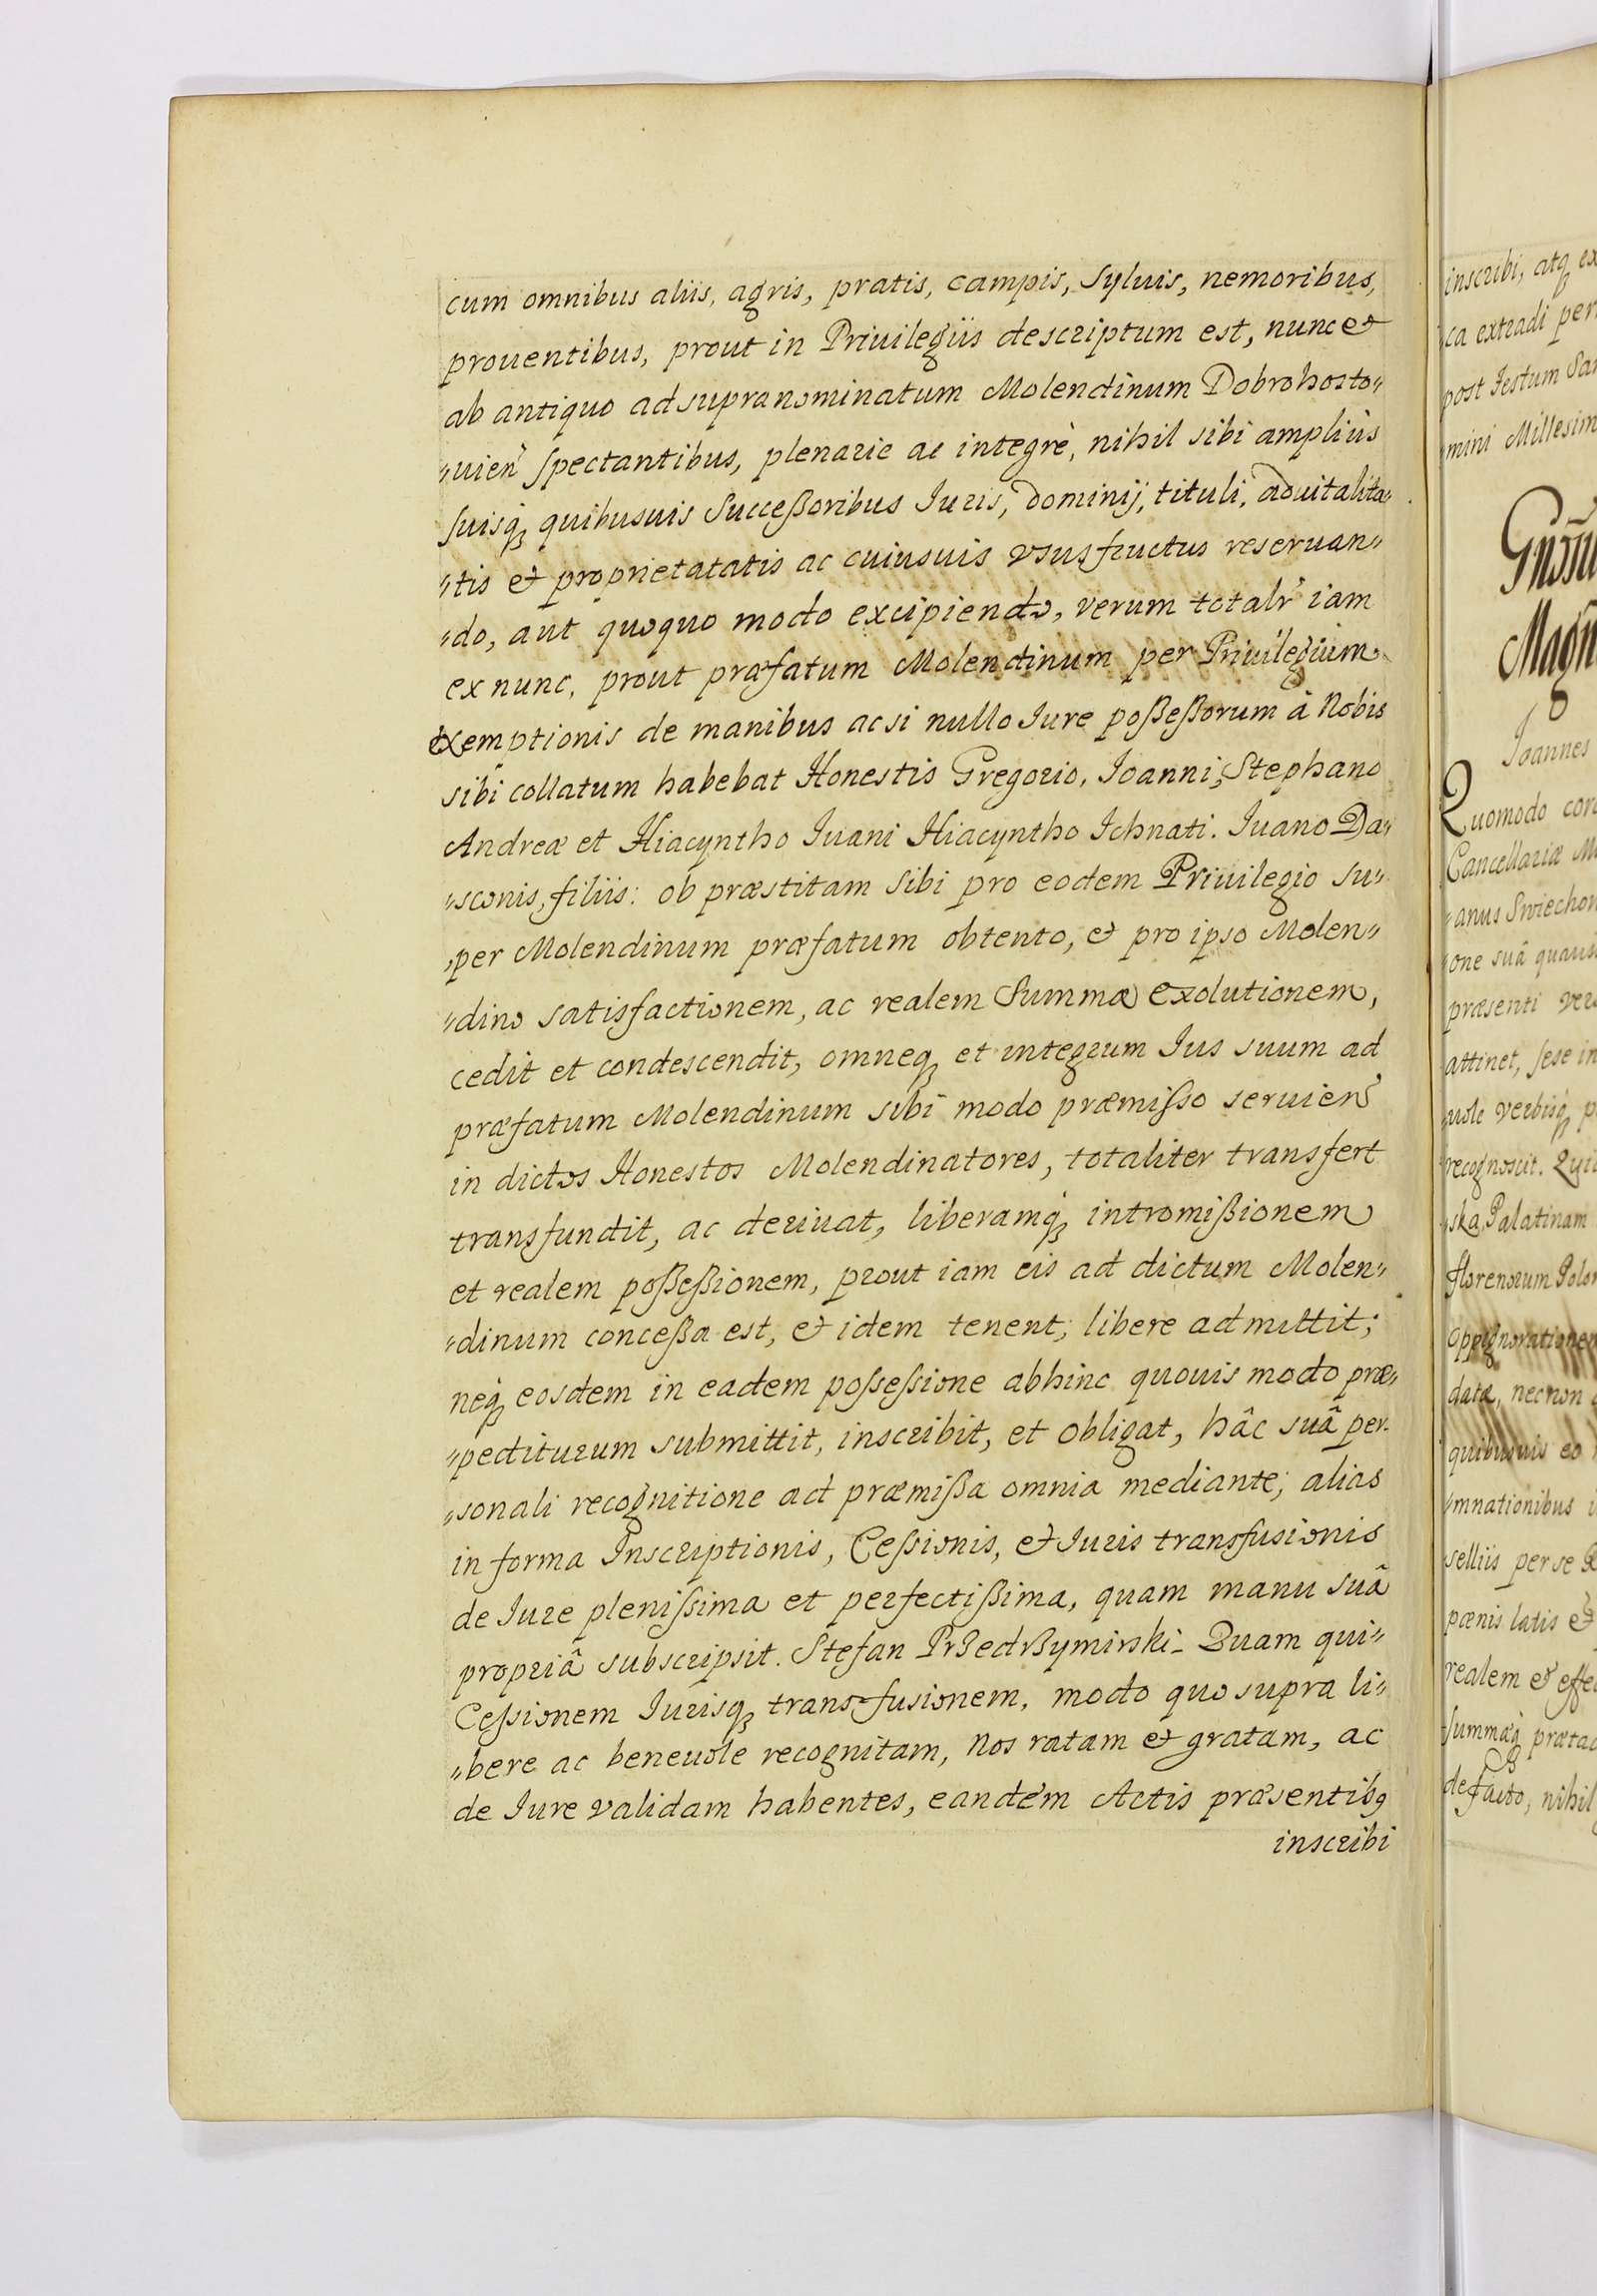 cum omnibus aliis, agris, pratis, campis, syluis, nemoribus,
prouentibus, prout in Priuilegiis descriptum est, nunc et
ab antiquo ad supranominatum Molendinum Dobrohosto„
„uien̄ spectantibus, plenarie ac integrè, nihil sibi ampliùs
suisq́ꝫ quibusuis Succeßoribus Iuris, Dominij, tituli, aduitalita„
„tis et proprietatatis ac cuiusuis vsusfructus reseruan„
„do, aut quoquo modo excipiendo, verum totalr̄ iam
ex nunc, prout præfatum Molendinum per Priuilegium
exemptionis de manibus acsi nullo Iure poßeßorum à Nobis
sibi collatum habebat Honestis Gregorio, Ioanni, Stephano
Andreæ et Hiacyntho Iuani Hiacyntho Ichnati. Iuano Da„
„sconis, filiis: ob præstitam sibi pro eodem Priuilegio su„
„per Molendinum præfatum obtento, et pro ipso Molen„
„dino satisfactionem, ac realem Summæ exolutionem,
cedit et condescendit, omneqꝫ et integrum Ius suum ad
præfatum Molendinum sibi modo præmisso seruien̄
in dictos Honestos Molendinatores, totaliter transfert
transfundit, ac deriuat, liberamq́ꝫ intromißionem
et realem poßeßionem, prout iam eis ad dictum Molen„
„dinum conceßa est, et idem tenent, libere admittit;
neq́ꝫ eosdem in eadem possessione abhinc quouis modo præ„
„pectiturum submittit, inscribit, et obligat, hâc suâ per
„sonali recognitione ad præmißa omnia mediante; alias
in forma Inscriptionis, Cessionis, et Iuris transfusionis
de Iure plenissima et perfectißima, quam manu suâ
propriâ subscripsit. Stefan Przedrzymirski. Quam qui„
Cessionem Iurisqꝫ transfusionem, modo quo supra li„
„bere ac beneuole recognitam, Nos ratam et gratam, ac
de Iure validam habentes, eandem Actis præsentibꝯ
inscribi
inscribi, atqꝫ ex
ca extradi per
post Festum San
mini Millesim
Magn
Ioannes
Quomodo cor
Cancellariæ M
„anus Swiechow
one suâ
præsenti
attinet, sese in
uole verbisqꝫ
recognoscit. Qui
ska, Palatinam
florenorum Polon
oppignorationem
data, necnon
quibusuis eo
„mnationibus
selliis per se
pænis latis et
realem et effe
summæqꝫ prætac
de facto, nihil